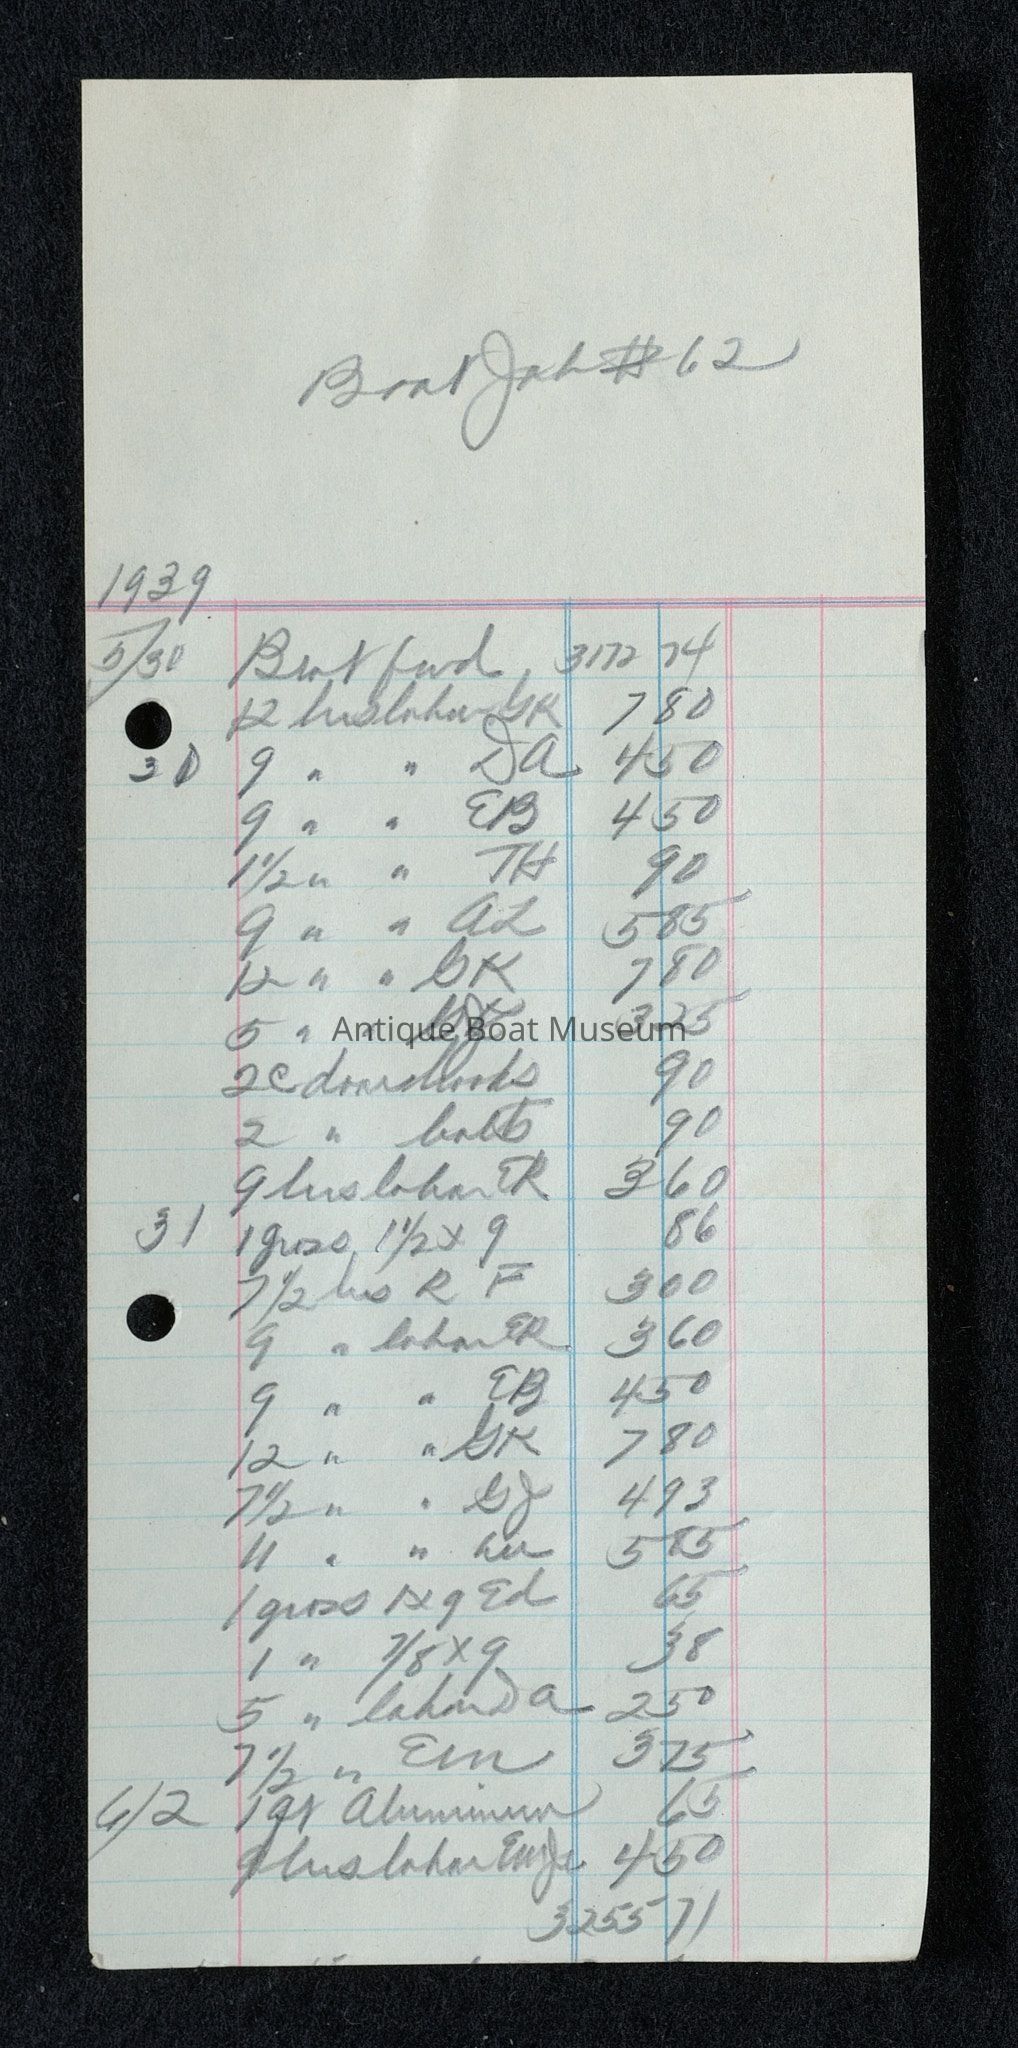 Boat Job # 62
1939
5/30 Brot fwd 3172 74
12 hrs labor GK 7 80
30 9 " " DA 4 50
9 " " EB 4 50
1 1/2 " " TH 90
9 " " AL 5 85
12 " " GK 7 80
5 " " 3 25
Antique Boat Museum
2 C door hooks 90
2 " bolts 90
9 hrs labor ER 3 60
31 1 gross 1 1/2 x 9 86
7 1/2 hrs R F 3 00
9 " labor ER 3 60
9 " " EB 4 50
12 " " GK 7 80
7 1/2 " " GJ 4 93
11 " " 5 85
1 gross 1 x 9 Ed 65
1 " 7/8 x 9 38
5 " labor DA 2 50
7 1/2 " Em 3 75
6/2 1 qt Aluminum 65
9 hrs labor 4 50
3255 71